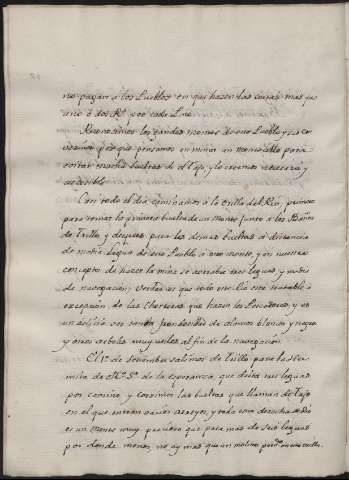 no pagan a los Pueblos en que hazen las cavas mas que
uno ò dos Rs por cada
Reconocimos los grandes montes de este Pueblo y sus
por que pensamos en minar un montecillo para
cortar mucha buelta de el Tajo, y lo creemos necesario y
asequible
Casi todo el dia caminamos à la orilla del Rio, primero
para tomar la primera buelta de un monte junto à los Baños
de Trillo, y despues para las demas bueltas à distancia
de media legua de este Pueblo à otro monte, y en nuestro
concepto de hazer la mina se ahorraba tres leguas y media
de navegacion;
excepcion de las Chorreras que hazen los Pescadores, y es
un delicioso ver tanta frondosidad de alamos blancos y negros
y otros arboles muy utiles al fin de la navegacion.
El 1º de Noviembre salimos de Trillo para la Her-
mita de Nª Sª de la esperanza, que dista tres leguas
por camino, y corrimos las bueltas que llaman de Tajo
en el que entran varios arroyos, y toda esta derecha del Rio
es un monte muy pues para mas de seis leguas
por donde menos, no ay mas que un molino